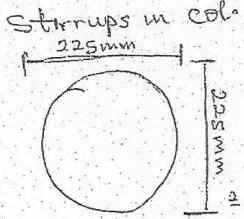 Stirrups in col.
225mm
225mm